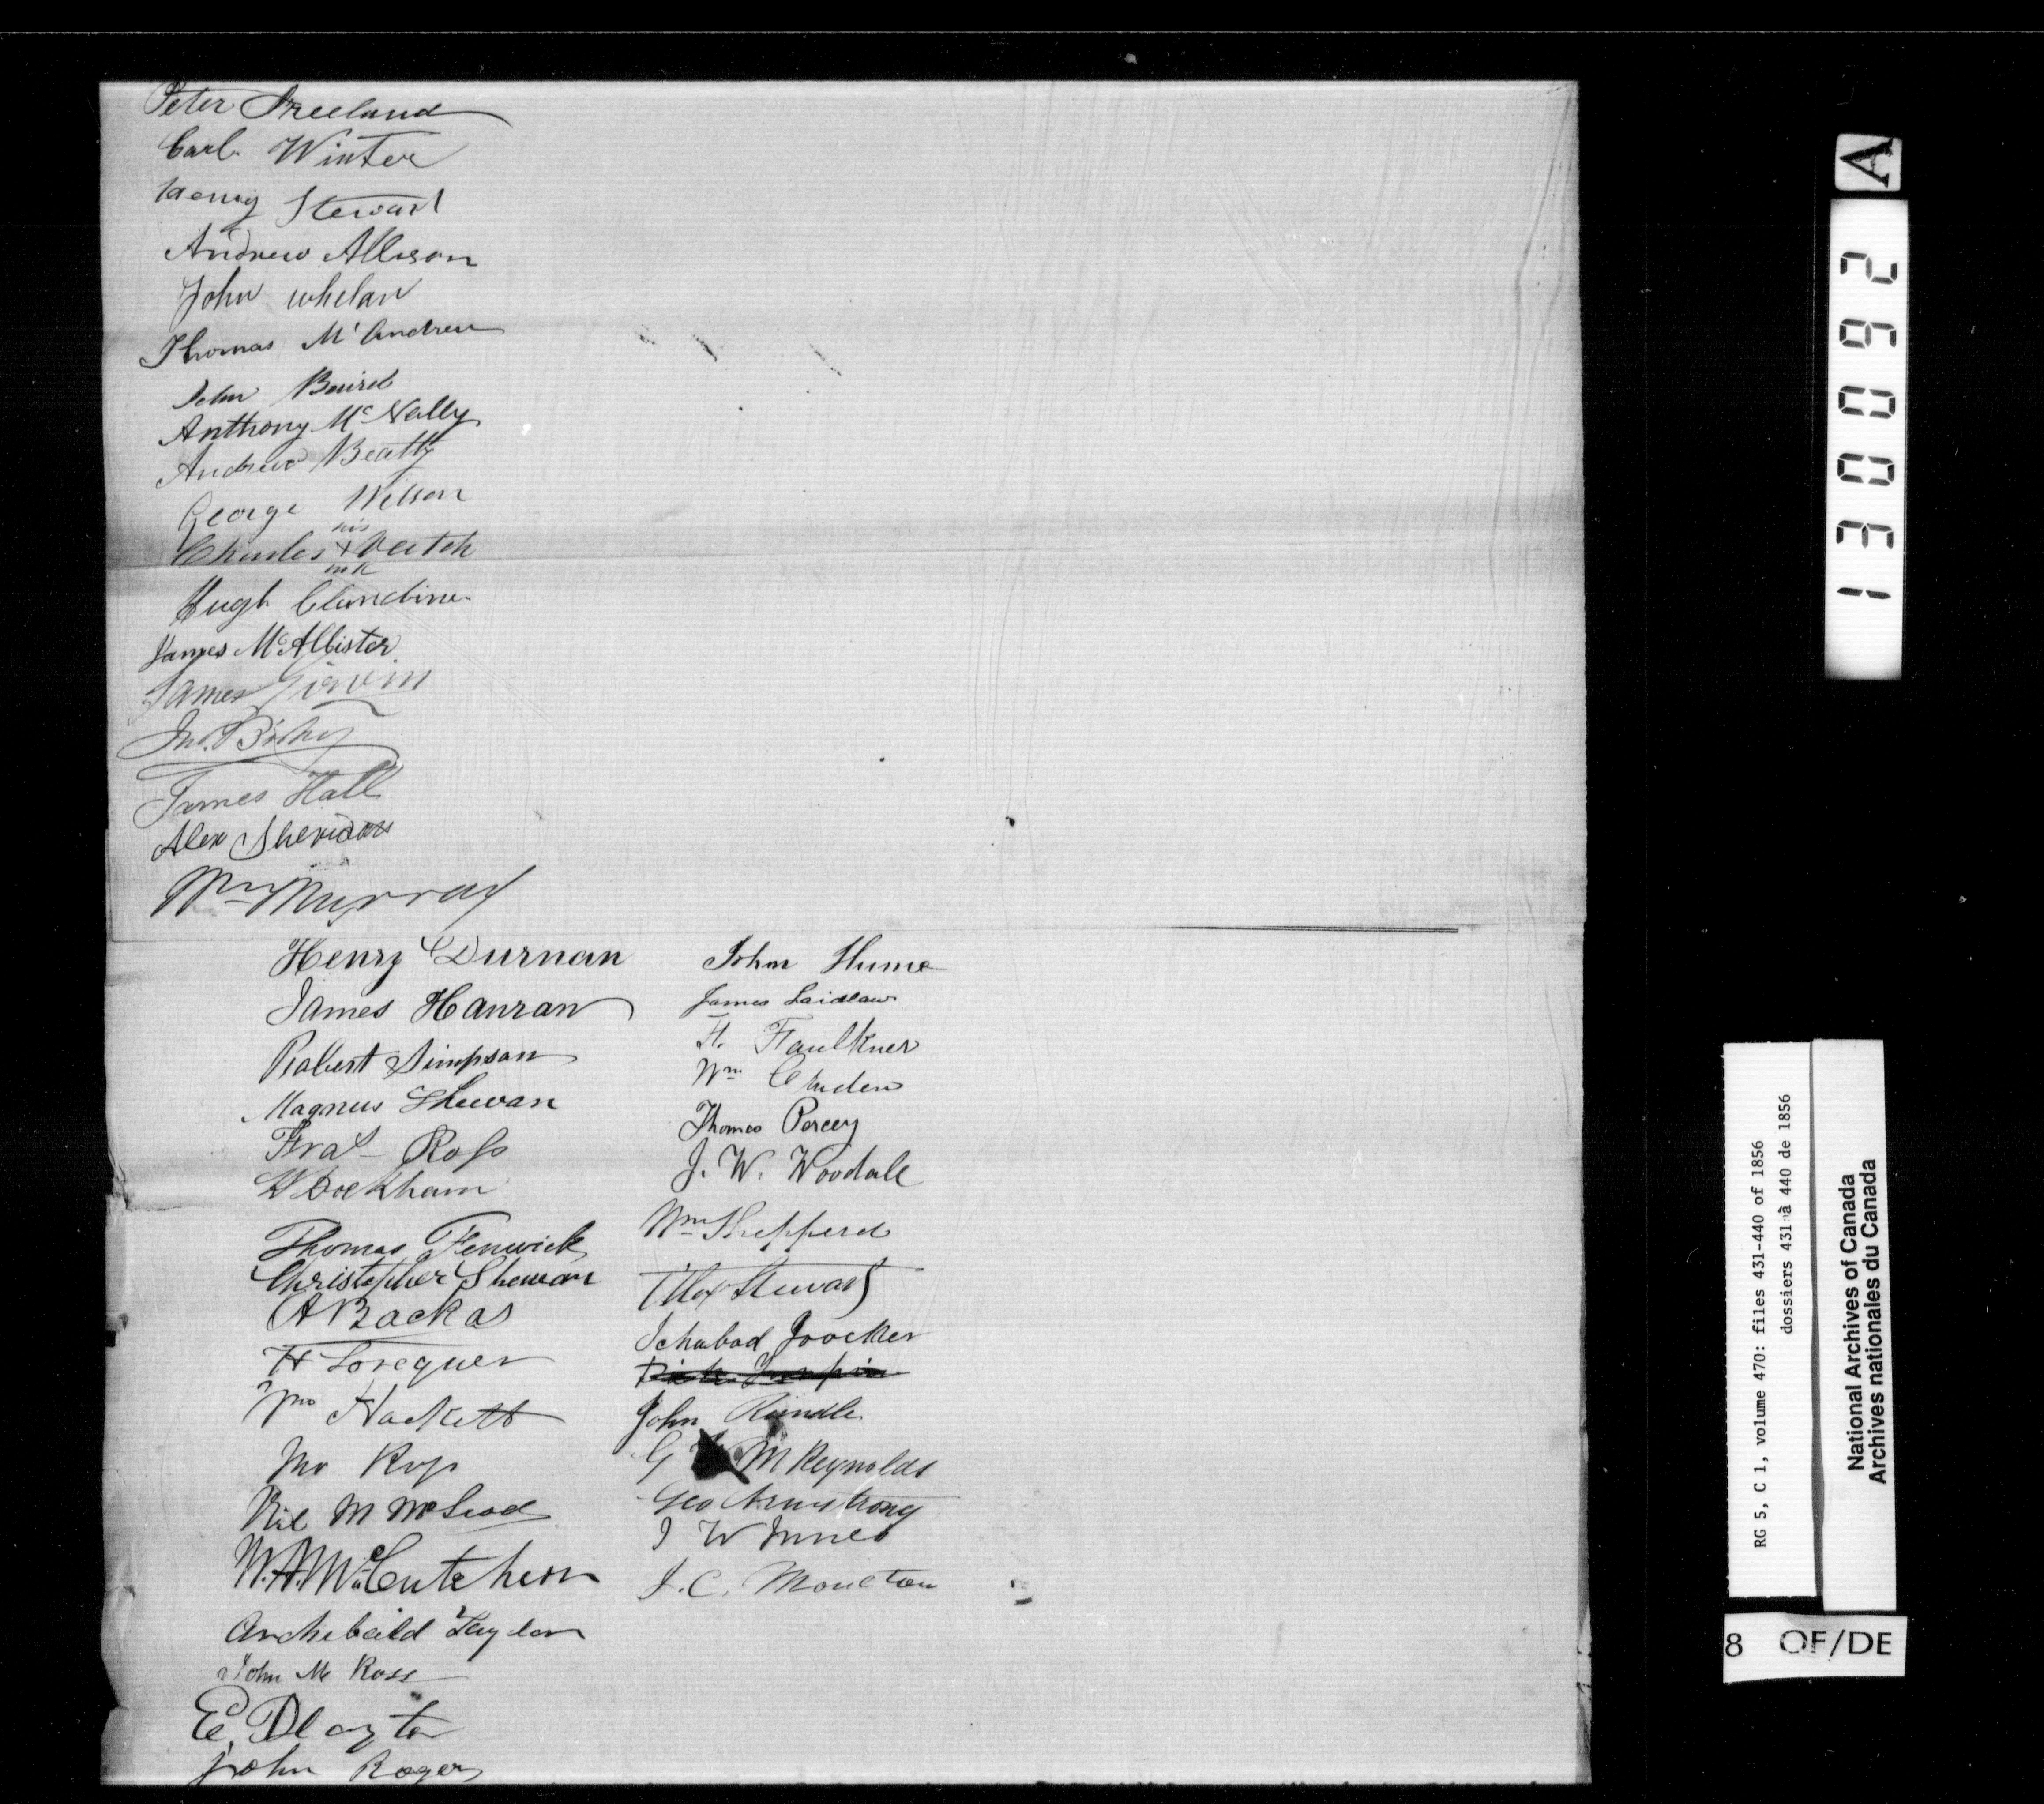 Peter Freeland
Carl Winter
Henry Stewart
Andrew Allison
John Whelan
Thomas M'Andrew
John Baird
Anthony McNally
Andrew Beatty
George Wilson
his
Charles + Veitch
mk
Hugh Clendine
James McAllister
James Girvin
Jno.
James Hall
Alex Sheridan
Wm Murray
Henry Durnan
James Hanran
Robert Simpson
Magnus Shewan
Fras Ross
W Bockham
Thomas Fenwick
Christopher Shewan
A Backas
H Lorequer
Jno Hackett
Jno Ross
Neil M McLeod
W. A. McCutcheon
Archibald Taylor
John Mc Ross
E. Clayton
John Rogers
John Hume
James Laidlaw
H. Faulkner
Wm
Thomas Percey
J. W. Woodall
Wm Shepperd
Alex Stewart
Ichabod Joocker
Dick Turpin
John Rundle
G M Reynolds
Geo Armstrong
J W Innes
J. C. Moulton
A
130092
RG 5, C 1, volume 470: files 431-440 of 1856
dossiers 431 à 440 de 1856
National Archives of Canada
Archives nationales du Canada
8 OF/DE